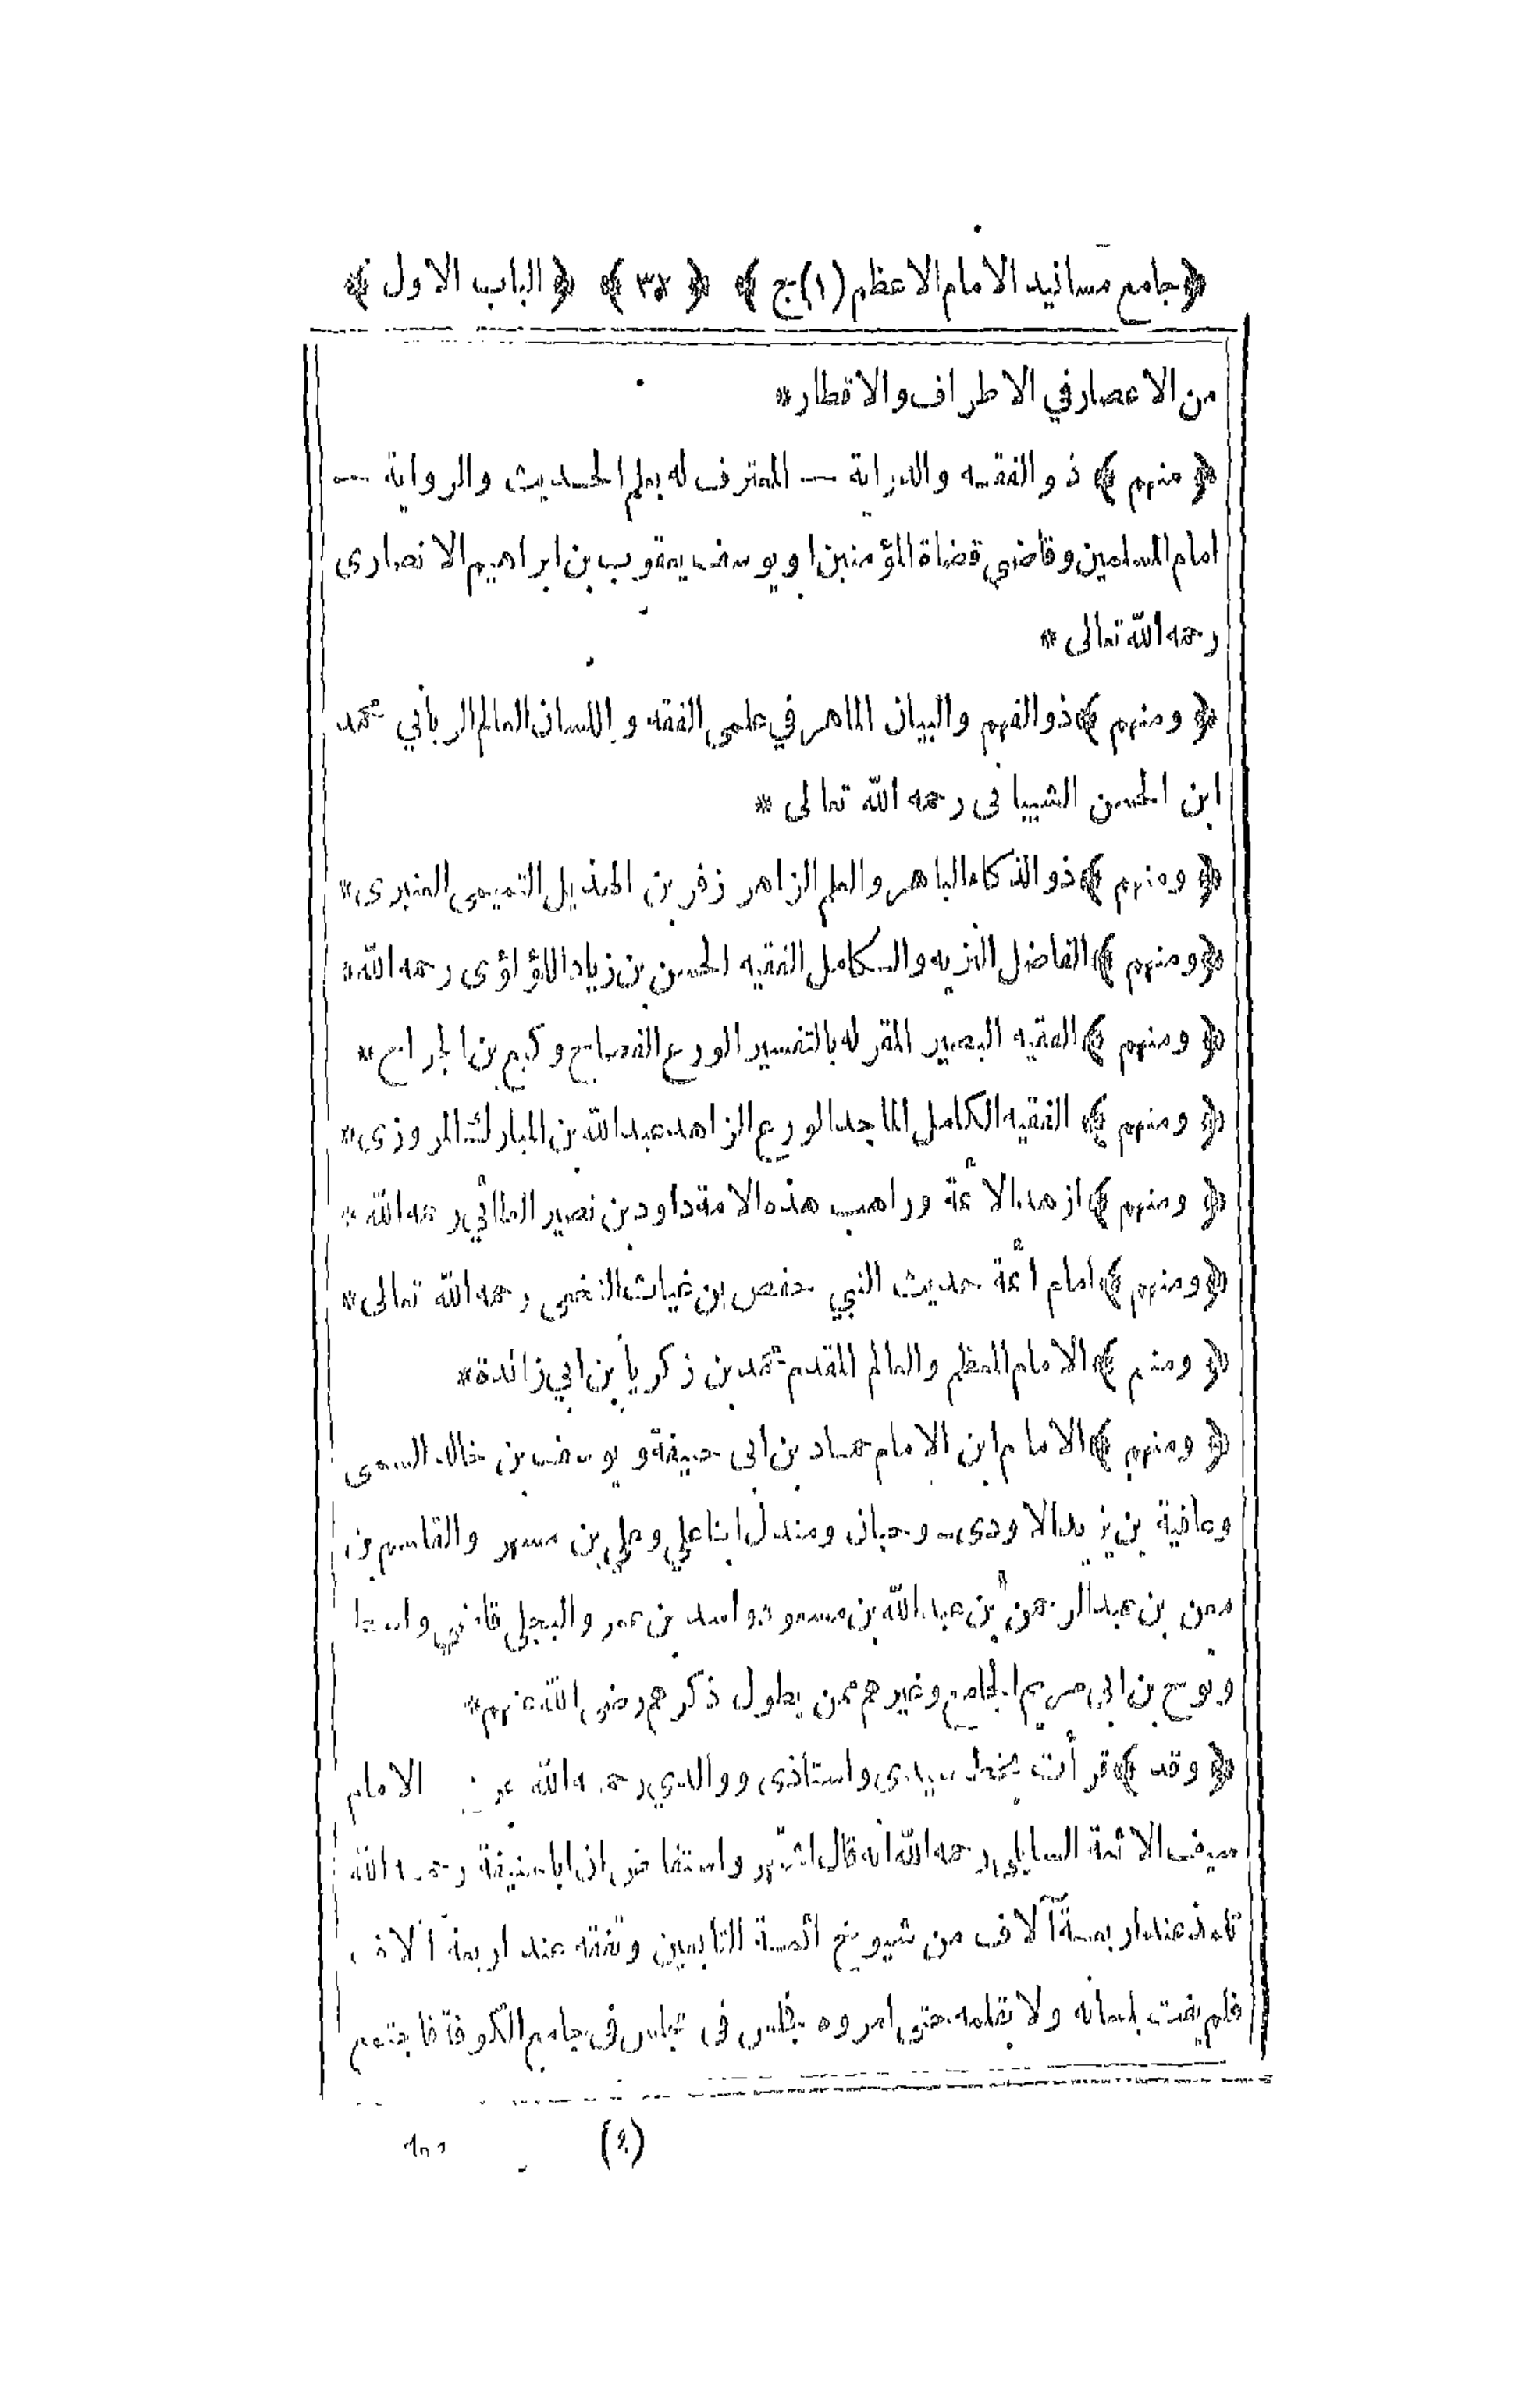 ﴿جامع مسانيد الامام الاعظم (١) ج﴾ ﴿٣٤﴾ ﴿الباب الاول﴾
من الاعصار في الاطراف والاقطار *
﴿منهم﴾ ذو الفقه والدراية – المعترف له بعلم الحديث والرواية –
امام المسلمين وقاضي قضاة المؤمنين ابو يوسف يعقوب بن ابراهيم الانصارى
رحمه الله تعالى *
﴿ومنهم﴾ ذو الفهم والبيان الماهر في علمى الفقه واللسان العالم الرباني محمد
ابن الحسن الشيبانى رحمه الله تعالى *
﴿ومنهم﴾ ذو الذكاء الباهر والعلم الزاهر زفر بن الهذيل التميمى العنبرى *
﴿ومنهم﴾ الفاضل النزيه والكامل الفقيه الحسن بن زياد اللؤلؤى رحمه الله *
﴿ومنهم﴾ الفقيه البصير المقر له بالتفسير الورع الفصايح وكيع بن الجراح *
﴿ومنهم﴾ الفقيه الكامل الماجد الورع الزاهد عبد الله بن المبارك المروزى *
﴿ومنهم﴾ ازهد الائمة وراهب هذه الامة داود بن نصير الطائي رحمه الله *
﴿ومنهم﴾ امام ائمة حديث النبي حفص بن غياث النخعى رحمه الله تعالى *
﴿ومنهم﴾ الامام المعظم والعالم المقدم محمد بن زكريا بن ابي زائدة *
﴿ومنهم﴾ الامام ابن الامام حماد بن ابى حنيفة ويوسف بن خالد السمتى
وعافية بن يزيد الاودى وحبان ومندل ابنا علي وعلي بن مسهر والقاسم بن
معن بن عبد الرحمن بن عبد الله بن مسعود واسد بن عمرو البجلي قاضي واسط
ونوح بن ابى مريم الجامع وغيرهم ممن يطول ذكرهم رضى الله عنهم *
﴿وقد﴾ قرأت بخط سيدى واستاذى ووالدي رحمه الله عن الامام
سيف الائمة السايلي رحمه الله انه قال اشتهر واستفاض ان ابا حنيفة رحمه الله
تلمذ عند اربعة آلاف من شيوخ ائمة التابعين وتفقه عند اربعة آلاف
فلم يفت بلسانه ولا بقلمه حتى امروه فجلس فى مجلس فى جامع الكوفة فاجتمع
(٤)